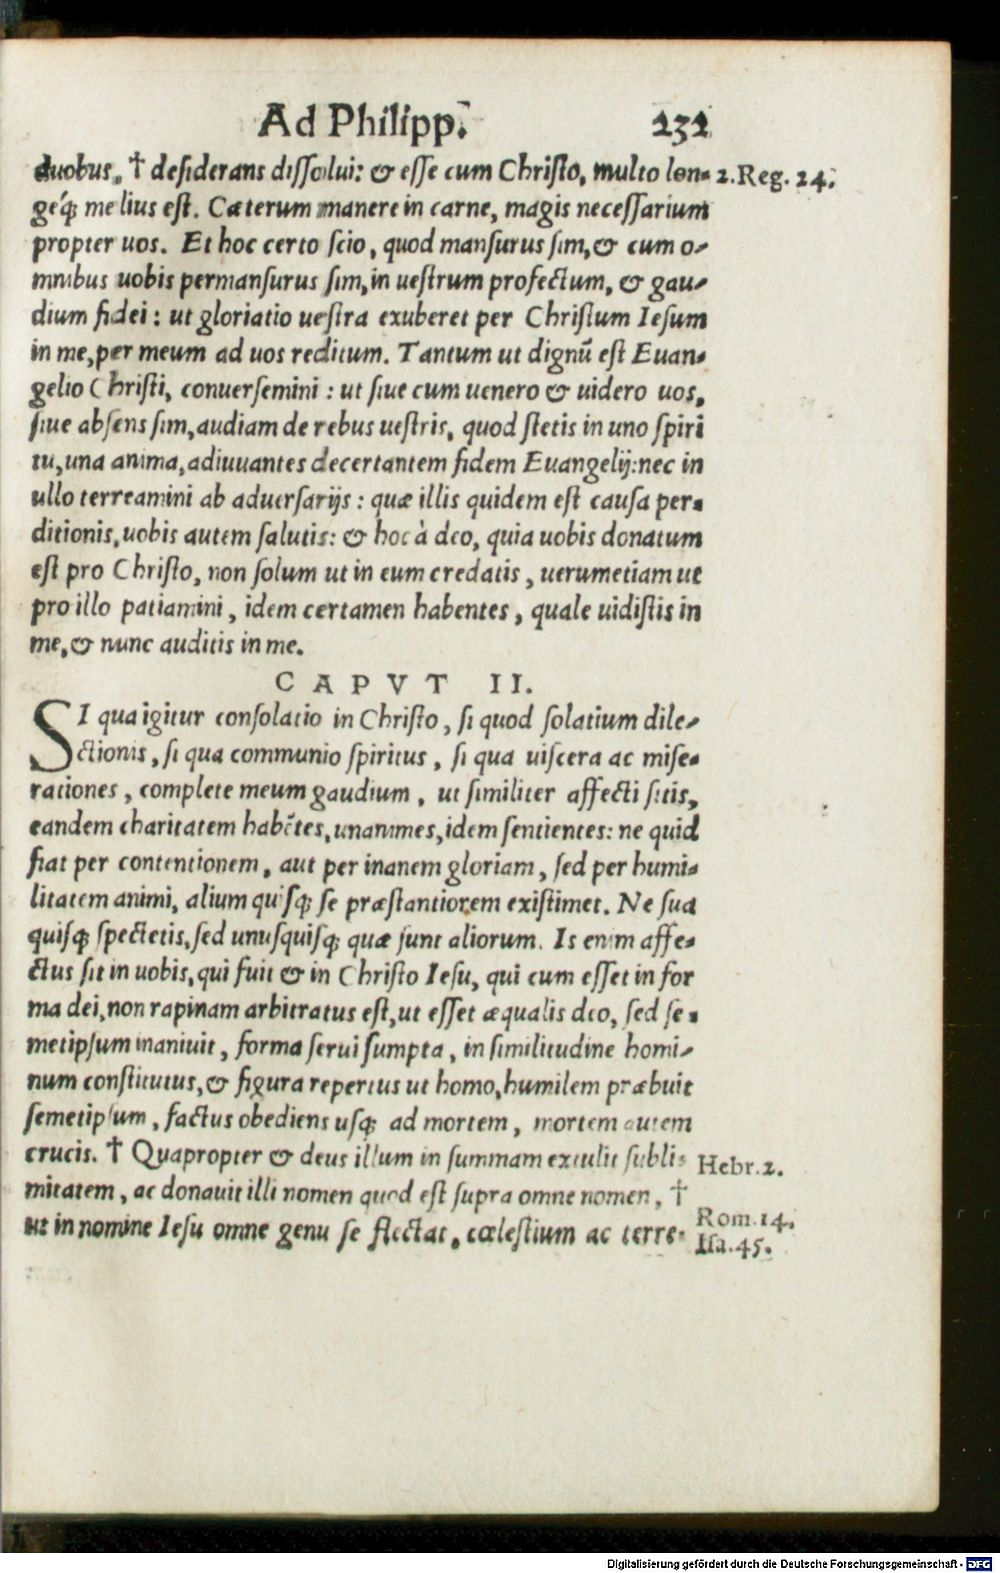 Ad Philipp. 232
duobus. † desiderans dissolui: & esse cum Christo, multo lon- 2.Reg. 24.
géq́; melius est. Cæterum manere in carne, magis necessarium
propter uos. Et hoc certo scio, quod mansurus sim, & cum o-
mnibus uobis permansurus sim, in uestrum profectum, & gau-
dium fidei: ut gloriatio uestra exuberet per Christum Iesum
in me, per meum ad uos reditum. Tantum ut dignũ est Euan-
gelio Christi, conuersemini: ut siue cum uenero & uidero uos,
siue absens sim, audiam de rebus uestris, quod stetis in uno spiri
tu, una anima, adiuuantes decertantem fidem Euangelij: nec in
ullo terreamini ab aduersarijs: quæ illis quidem est causa per-
ditionis, uobis autem salutis: & hoc à deo, quia uobis donatum
est pro Christo, non solum ut in eum credatis, uerumetiam ut
pro illo patiamini, idem certamen habentes, quale uidistis in
me, & nunc auditis in me.
CAPVT II.
SI qua igitur consolatio in Christo, si quod solatium dile-
ctionis, si qua communio spiritus, si qua uiscera ac mise-
rationes, complete meum gaudium, ut similiter affecti sitis,
eandem charitatem habẽtes, unanimes, idem sentientes: ne quid
fiat per contentionem, aut per inanem gloriam, sed per humi-
litatem animi, alium quisq; se præstantiorem existimet. Ne sua
quisq; spectetis, sed unusquisq; quæ sunt aliorum. Is enim affe-
ctus sit in uobis, qui fuit & in Christo Iesu, qui cum esset in for
ma dei, non rapinam arbitratus est, ut esset æqualis deo, sed se-
metipsum inaniuit, forma serui sumpta, in similitudine homi-
num constitutus, & figura repertus ut homo, humilem præbuit
semetipsum, factus obediens usq; ad mortem, mortem autem
crucis. † Quapropter & deus illum in summam extulit subli- Hebr.2.
mitatem, ac donauit illi nomen quod est supra omne nomen, †
Rom.14.
ut in nomine Iesu omne genu se flectat, cœlestium ac terre- Isa.45.
Digitalisierung gefördert durch die Deutsche Forschungsgemeinschaft - DFG